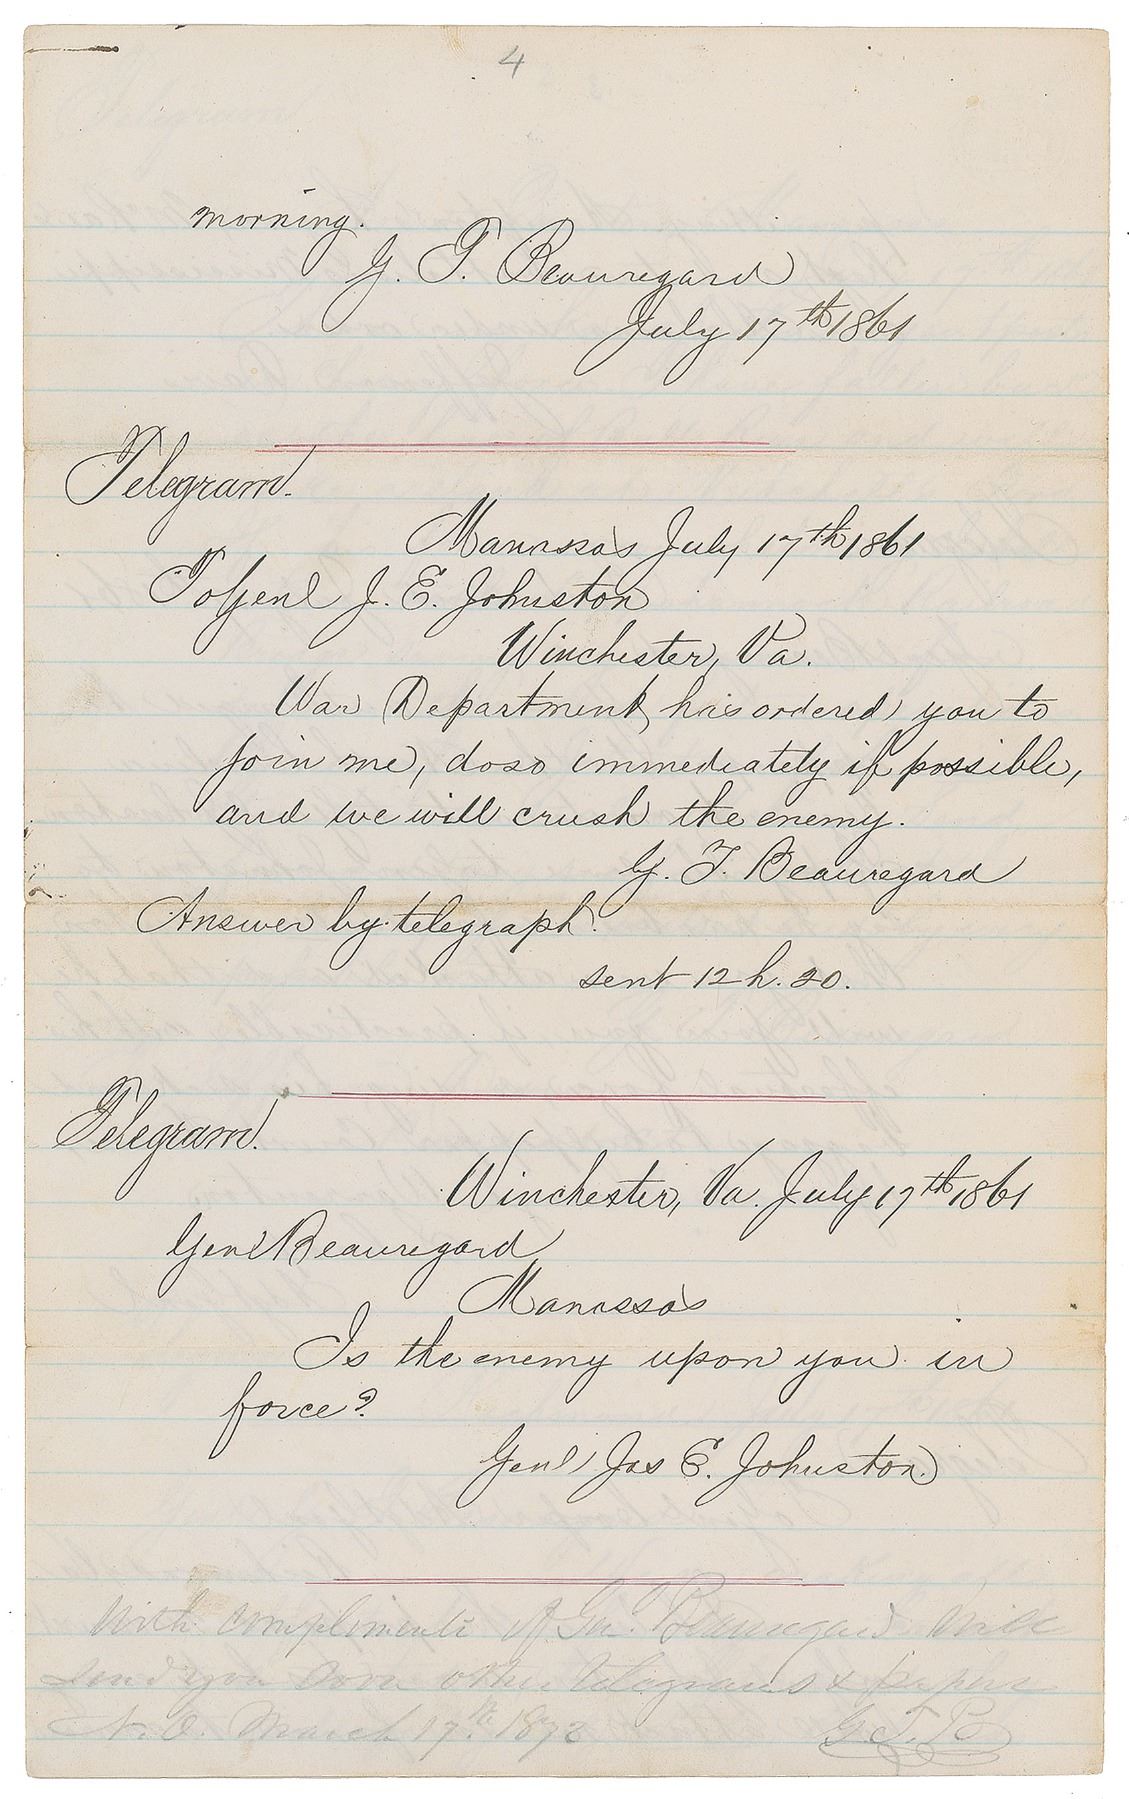 4
morning.
G. T. Beauregard
July 17th 1861
Telegram.
Manassas July 17th 1861
To Genl J. E. Johnston
Winchester, Va.
War Department has ordered you to
join me, do so immediately if possible,
and we will crush the enemy.
G. T. Beauregard
Answer by telegraph.
sent 12 h. 20.
Telegram.
Winchester, Va. July 17th 1861
Genl Beauregard
Manassas
Is the enemy upon you in
force?
Genl Jos E. Johnston.
With compliments of Gen. Beauregard. Will
send you soon other telegrams & papers
N. O. March 17th 1872
G. T. B